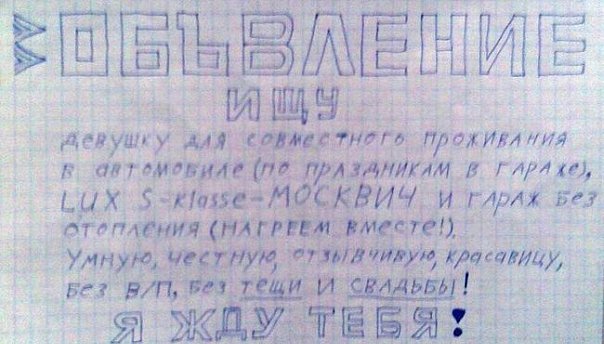 ОБЪВЛЕНИЕ
ИЩУ
девушку для совместного проживания
в автомобиле (по праздникам в гараже),
LUX S-klasse-МОСКВИЧ и гараж без
отопления (НАГРЕЕМ вместе!).
Умную, честную, отзывчивую, красавицу,
без в/п, без тещи и свадьбы!
Я ЖДУ ТЕБЯ!